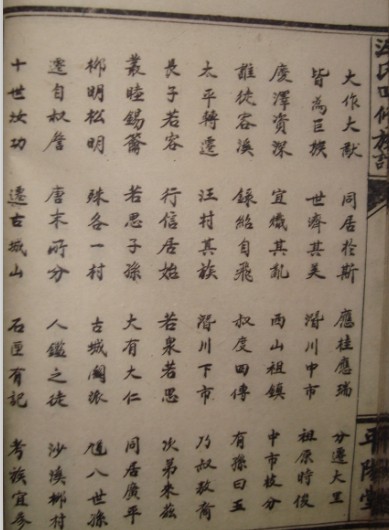 平陽堂
大作大猷 同居於斯 應桂應瑞 分遷大里
皆為巨族 世濟其美 潛川中市 祖原時俊
慶澤資深 宜熾其胤 西山祖鎮 中市枝分
誰從容溪 錄紹自飛 叔度田傳 有孫曰五
太平轉遷 汪村其族 潛川下市 乃叔敖裔
長子若容 行信居始 若泉若思 次弟來茲
叢睦錫齋 若思子孫 大有大仁 同居廣平
明松明 殊各一村 古城關派 馗八世孫
遷自叔詹 唐末所分 人鑑之徒 沙溪 村
十世汝功 遷古城山 石匣有記 考族宜參